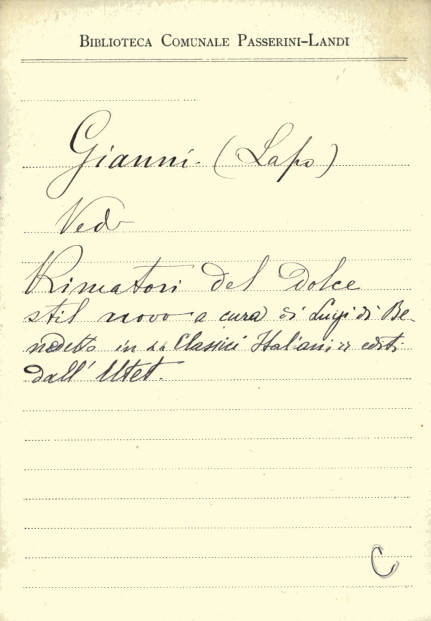 BIBLIOTECA COMUNALE PASSERINI-LANDI
Gianni. (Lapo)
Vedi
Rimatori del Dolce
stil novo a cura di Luigi di Be-
nedetto in « Classici Italiani » editi
dall' Utet.
C